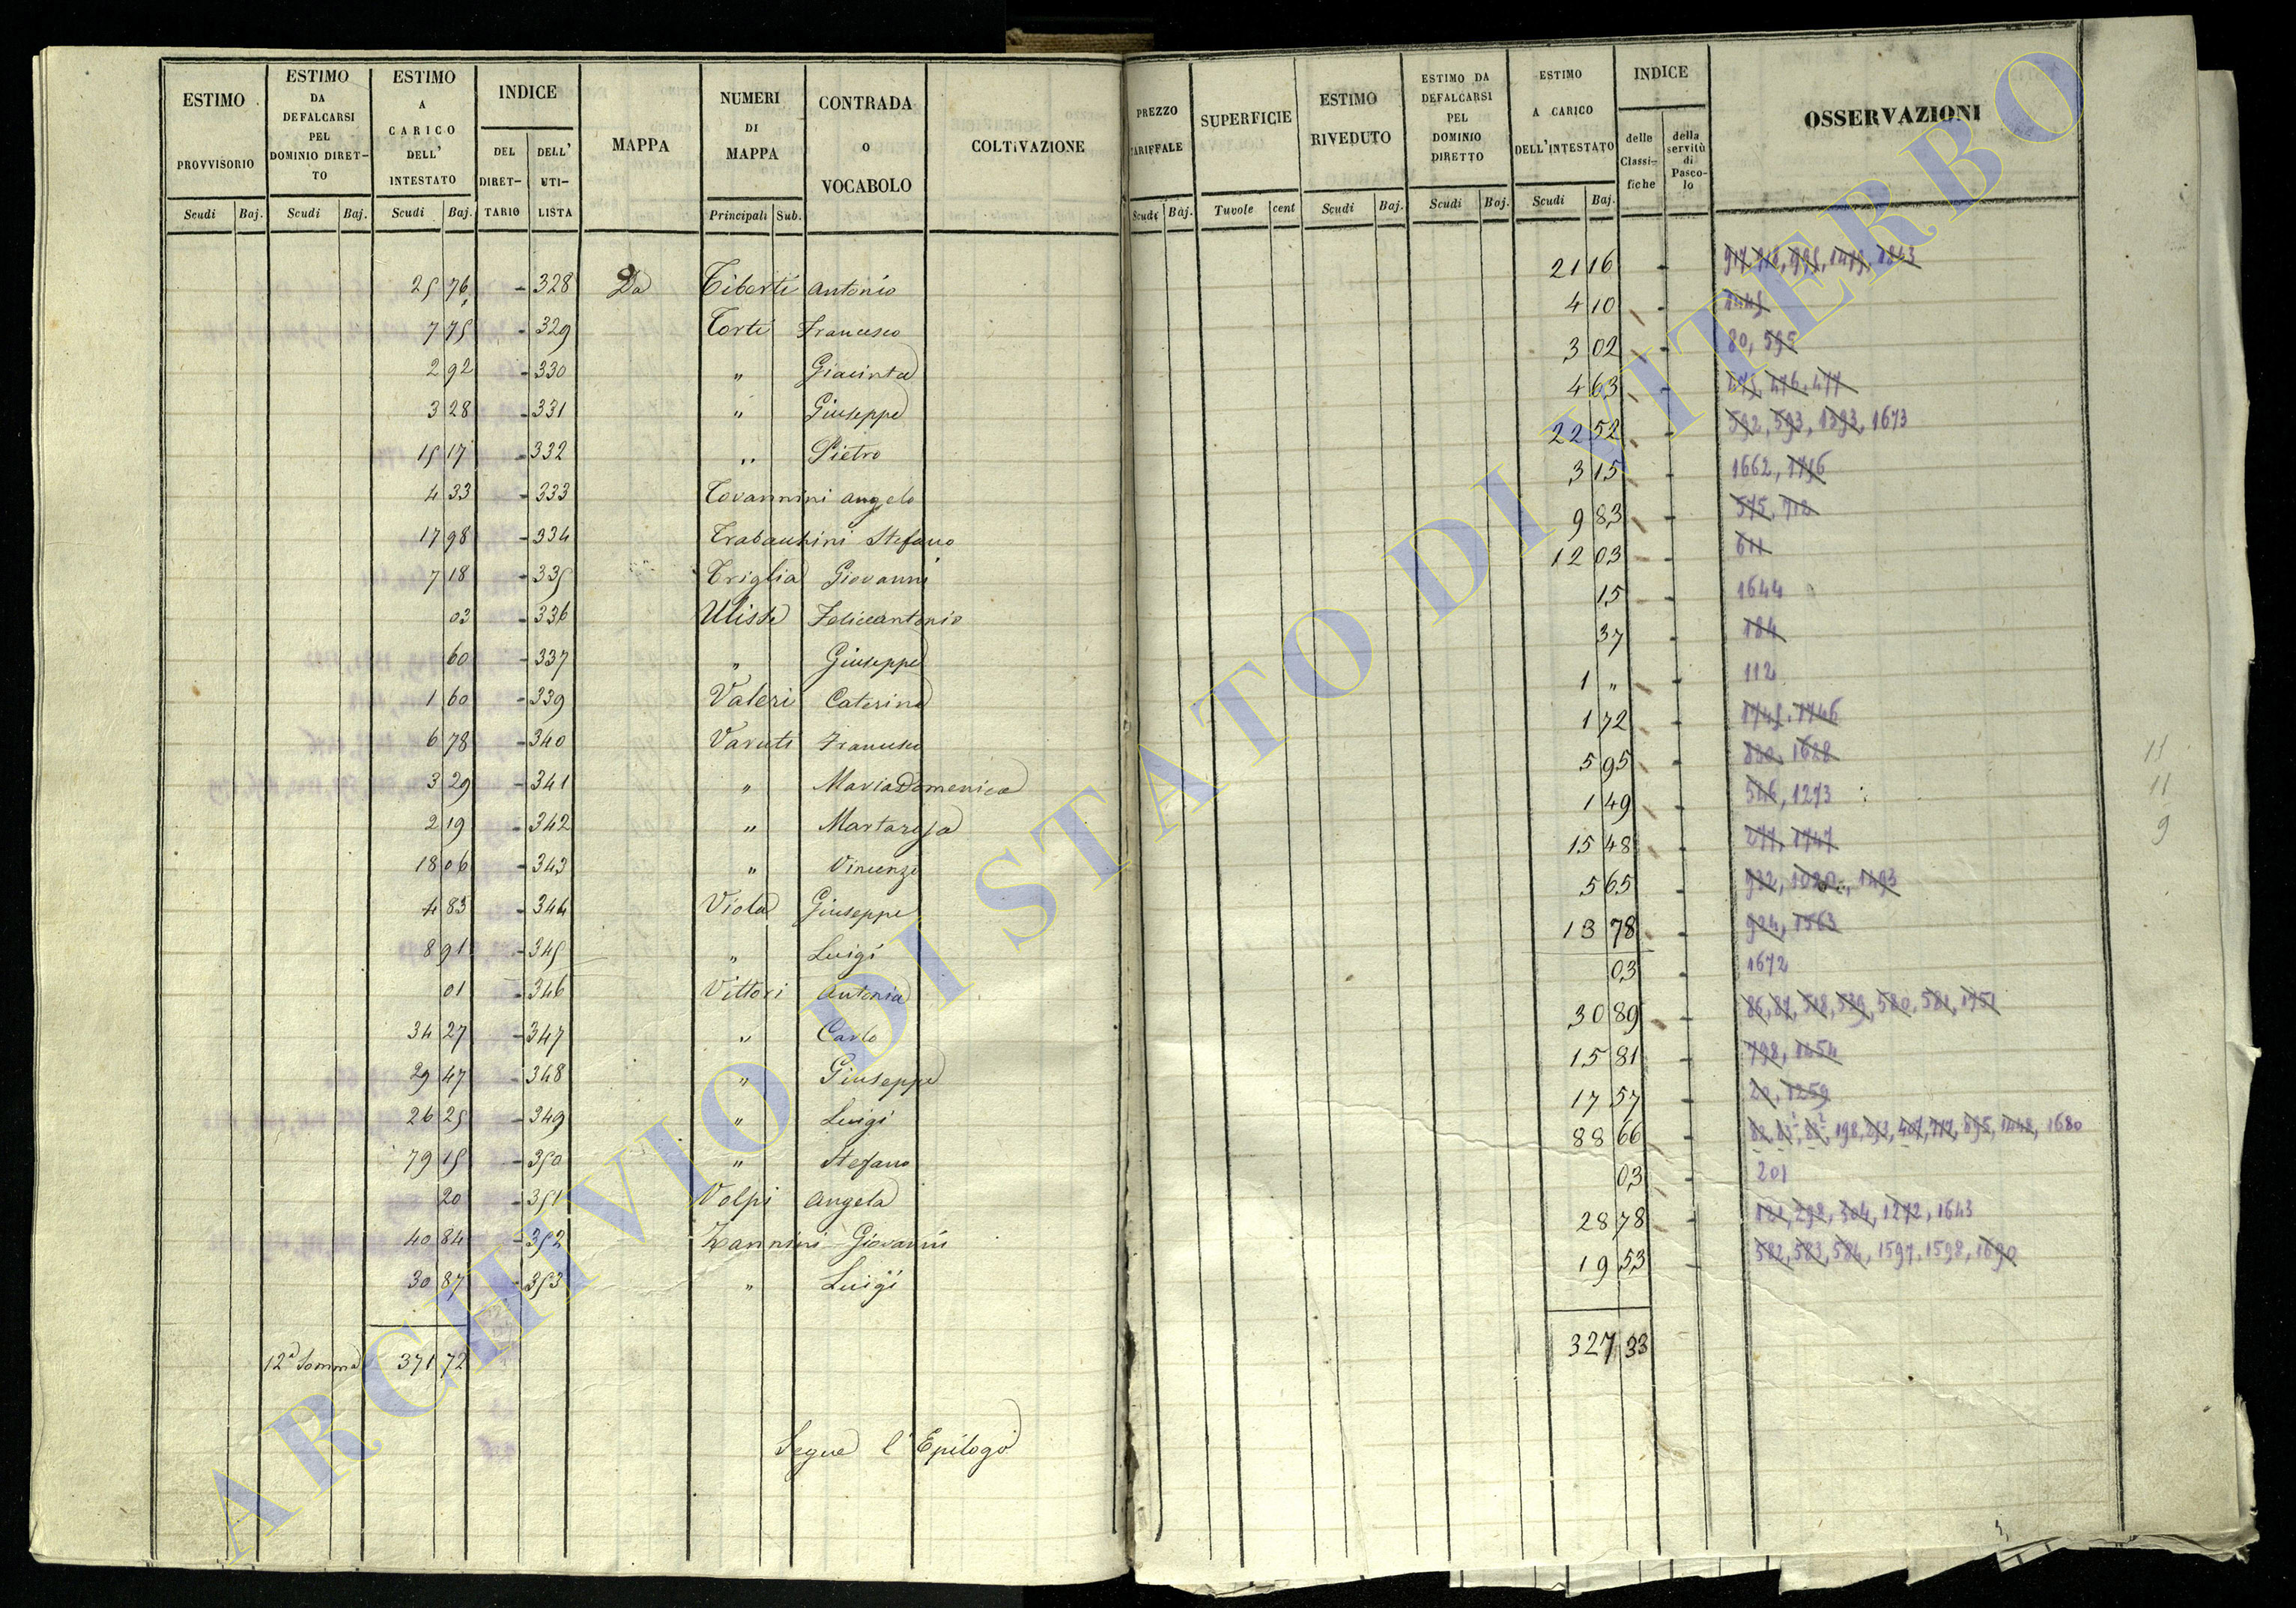 ESTIMO PROVVISORIO
ESTIMO DA DEFALCARSI PEL DOMINIO DIRET-TO
ESTIMO A CARICO DELL' INTESTATO
INDICE
DEL DIRET-TARIO
DELL' UTI-LISTA
MAPPA
NUMERI DI MAPPA
CONTRADA O VOCABOLO
COLTIVAZIONE
Scudi Baj. Scudi Baj. Scudi Baj. Principali Sub.
25 76 - 328 Da Tiberti Antonio
7 75 - 329 Torti Francesco
2 92 - 330 " Giacinta
3 28 - 331 " Giuseppe
15 17 - 332 " Pietro
4 33 - 333 Tovannini Angelo
17 98 - 334 Trabacchini Stefano
7 18 - 335 Triglia Giovanni
03 - 336 Ulisse Feliceantonio
60 - 337 " Giuseppe
1 60 - 339 Valeri Caterina
6 78 - 340 Varuti Francesco
3 29 - 341 " Maria Domenica
2 19 - 342 "
18 06 - 343 " Vincenzo
4 83 - 344 Viola Giuseppe
8 91 - 345 " Luigi
01 - 346 Vittori Antonia
34 27 - 347 " Carlo
29 47 - 348 " Giuseppe
26 25 - 349 " Luigi
79 15 - 350 " Stefano
20 - 351 Volpi Angela
40 84 - 352 Zannini Giovanni
30 87 - 353 " Luigi
12a Somma 371 72
Segue l'Epilogo
PREZZO TARIFFALE
SUPERFICIE
ESTIMO RIVEDUTO
ESTIMO DA DEFALCARSI PEL DOMINIO DIRETTO
ESTIMO A CARICO DELL'INTESTATO
INDICE
delle Classi-fiche
della servitù di Pasco-lo
OSSERVAZIONI
Scudi Baj. Tavole cent Scudi Baj. Scudi Baj. Scudi Baj.
21 16 - 917, 918, 995, 1475, 1843
4 10 - 1445
3 02 - 80, 595
4 63 - 475, 476, 477
22 52 - 592, 593, 1393, 1673
3 15 - 1662, 1716
9 83 - 575, 712
12 03 - 611
15 - 1644
37 - 184
1 " - 112
1 72 - 1745, 1746
5 95 - 830, 1628
1 49 - 546, 1273
15 48 - 277, 1747
5 65 - 922, 1020, 1493
13 78 - 924, 1563
03 - 1672
30 89 - 86, 87, 518, 539, 580, 581, 1751
15 81 - 798, 1454
17 57 - 20, 1259
88 66 - 198, 407, 717, 895, 1448, 1680
03 - 201
28 78 - 121, 298, 304, 1272, 1643
19 53 - 582, 583, 584, 1597, 1598, 1690
327 33
11
9
ARCHIVIO DI STATO DI VITERBO